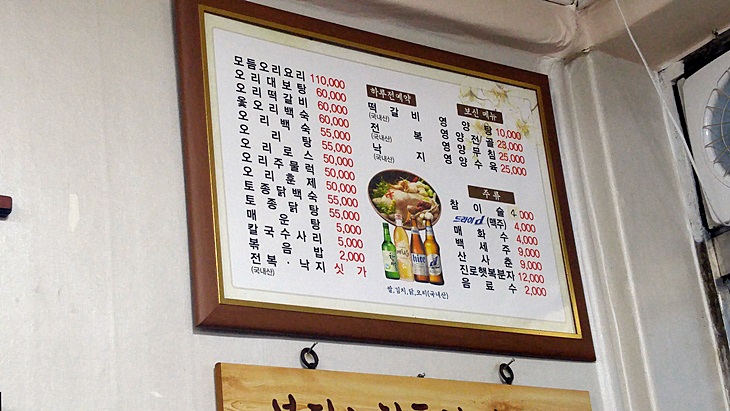 모듬오리요리 110,000
오리대보탕 60,000
오리떡갈비 60,000
오리백숙 60,000
옻오리백숙 55,000
오리탕 55,000
오리로스 50,000
오리주물럭 50,000
오리훈제 50,000
토종닭백숙 55,000
토종닭탕 55,000
매운사리 5,000
칼국수 5,000
볶음밥 2,000
전복·낙지 싯가
(국내산)
하루전예약
떡갈비
(국내산)
전복
(국내산)
낙지
(국내산)
보신 메뉴
영양탕 10,000
영양전골 23,000
영양무침 25,000
영양수육 25,000
주류
참이슬 4,000
드라이d(맥주) 4,000
매화수 4,000
백세주 9,000
산사춘 9,000
진로햇복분자 12,000
음료수 2,000
쌀,김치,닭,오리(국내산)